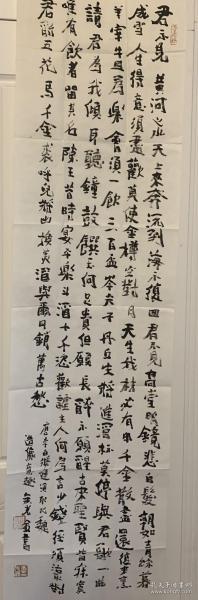 君不見黃河之水天上來奔流到海不復回君不見高堂明鏡悲白髮朝如青絲暮
成雪人生得意須盡歡莫使金樽空對月天生我材必有用千金散盡還復來烹
羊宰牛且爲樂會須一飲三百盃岑夫子丹丘生將進酒杯莫停與君歌一曲
請君為我傾耳聽鐘鼓饌玉何足貴但願長醉不願醒古來聖賢皆寂寞
唯有飲者留其名陳王昔時宴平樂斗酒十千恣歡謔主人何為言少錢徑須沽取對
君酌五花馬千金裘呼兒將出換美酒與爾同銷萬古愁
唐李白將進酒